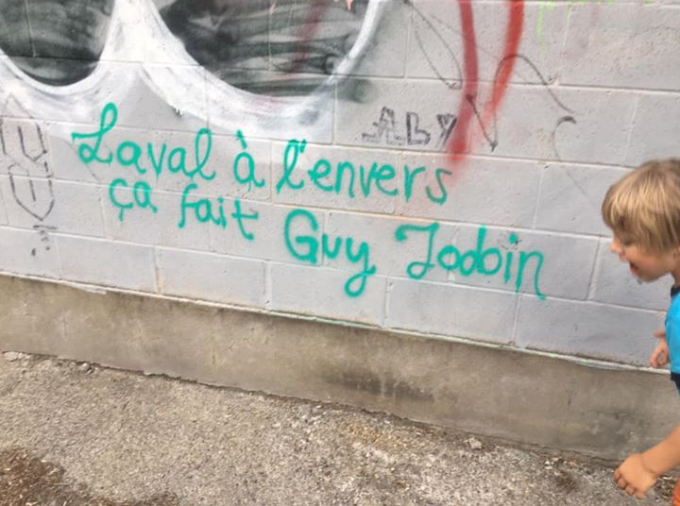 ALBY
Laval à l'envers
ça fait Guy Jodoin